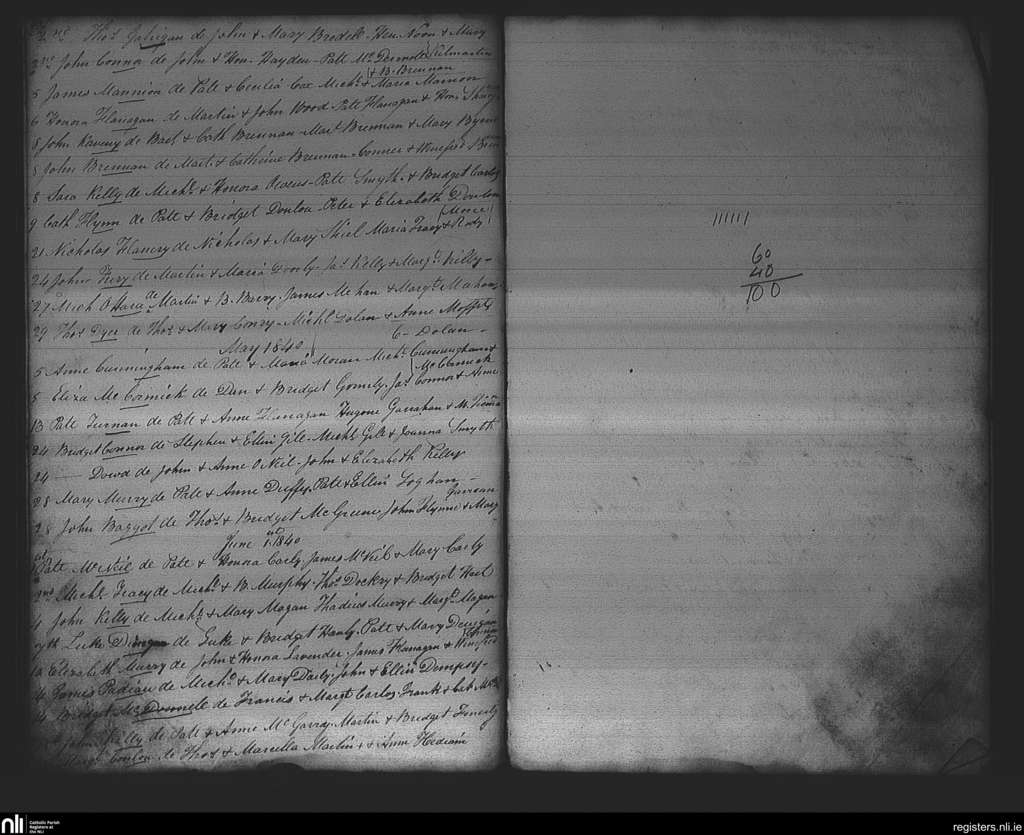 2nd Thos Galvigan de John & Mary Bredell Hen. Noon & Mary
2nd John Connor de John & Hon. Hayden - Patt Mc Dermott Kilmartin
& B. Brennan
5 James Mannion de Patt & Cecilia Cox Michl & Maria Mannion
6 Honora Flanagan de Martin & John Wood - Patt Flanagan & Hon.
8 John Raveny de Bart & Cath Brennan - Mart Brennan & Mary Byrne
8 John Brennan de Mart. & Catherine Brennan - Connor & Winefred
8 Sara Kelly de Michl & Honora - Patt Smyth & Bridget Carly
9 Cath Flynn de Patt & Bridget Donlon - Peter & Elizabeth Donlon
21 Nicholas Flanery de Nicholas & Mary Shiel Maria Tracy &
24 John Fury de Martin & Maria Dooly - Jas Kelly & Margt Kelly -
27 Mich O Hara de Martin & B. Barry James Mehan & Margt Mahon
29 Thos Dyer de Thos & Mary Conry - Michl Dolan & Anne Moffett
C - Dolan -
May 1840
5 Anne Cunningham de Patt & Maria Moran Michl Cunningham &
Mc Cormick
8 Eliza Mc Cormick de Dan & Bridget Gormly - Jas Connor & Anne
13 Patt Turnan de Patt & Anne Hanagan Hugone Garrahan & M.
24 Bridget Connor de Stephen & Ellen Gill - Michl Gill & Joanna Smyth
24 — Dowd de John & Anne O Neil - John & Elizabeth Kelly
28 Mary Murry de Patt & Anne Duffy, Patt & Ellen Loghan -
Garvean
28 John Bargot de Thos & Bridget Mc Greene John Flynne & Mary
June 1st 1840
1st Patt McNeil de Patt & Honora Carly James McNeil & Mary Carly
2nd Michl Tracy de Michl & B. Murphy - Thos Dockry & Bridget Hart
4 John Kelly de Michl & Mary Magan Thadius Murry & Margt Magan
7th Luke de Luke & Bridget Hanly - Patt & Mary Deingan
Elizabeth Murry de John & Honora Lavender - James Flanagan & Winefred
James Padian de Michl & Mary Daily - John & Ellen Dempsy -
Bridget Mc Donnell de Francis & Margt Carlos, Frank & Cath
John Kelly de Patt & Anne Mc Garry - Martin & Bridget Fenerty
Conlon de Thos & Marcella Martin & Anne Hedian
1 1 1 1 1 1
60
40
100
nli
Catholic Parish
Registers at
the NLI
registers.nli.ie